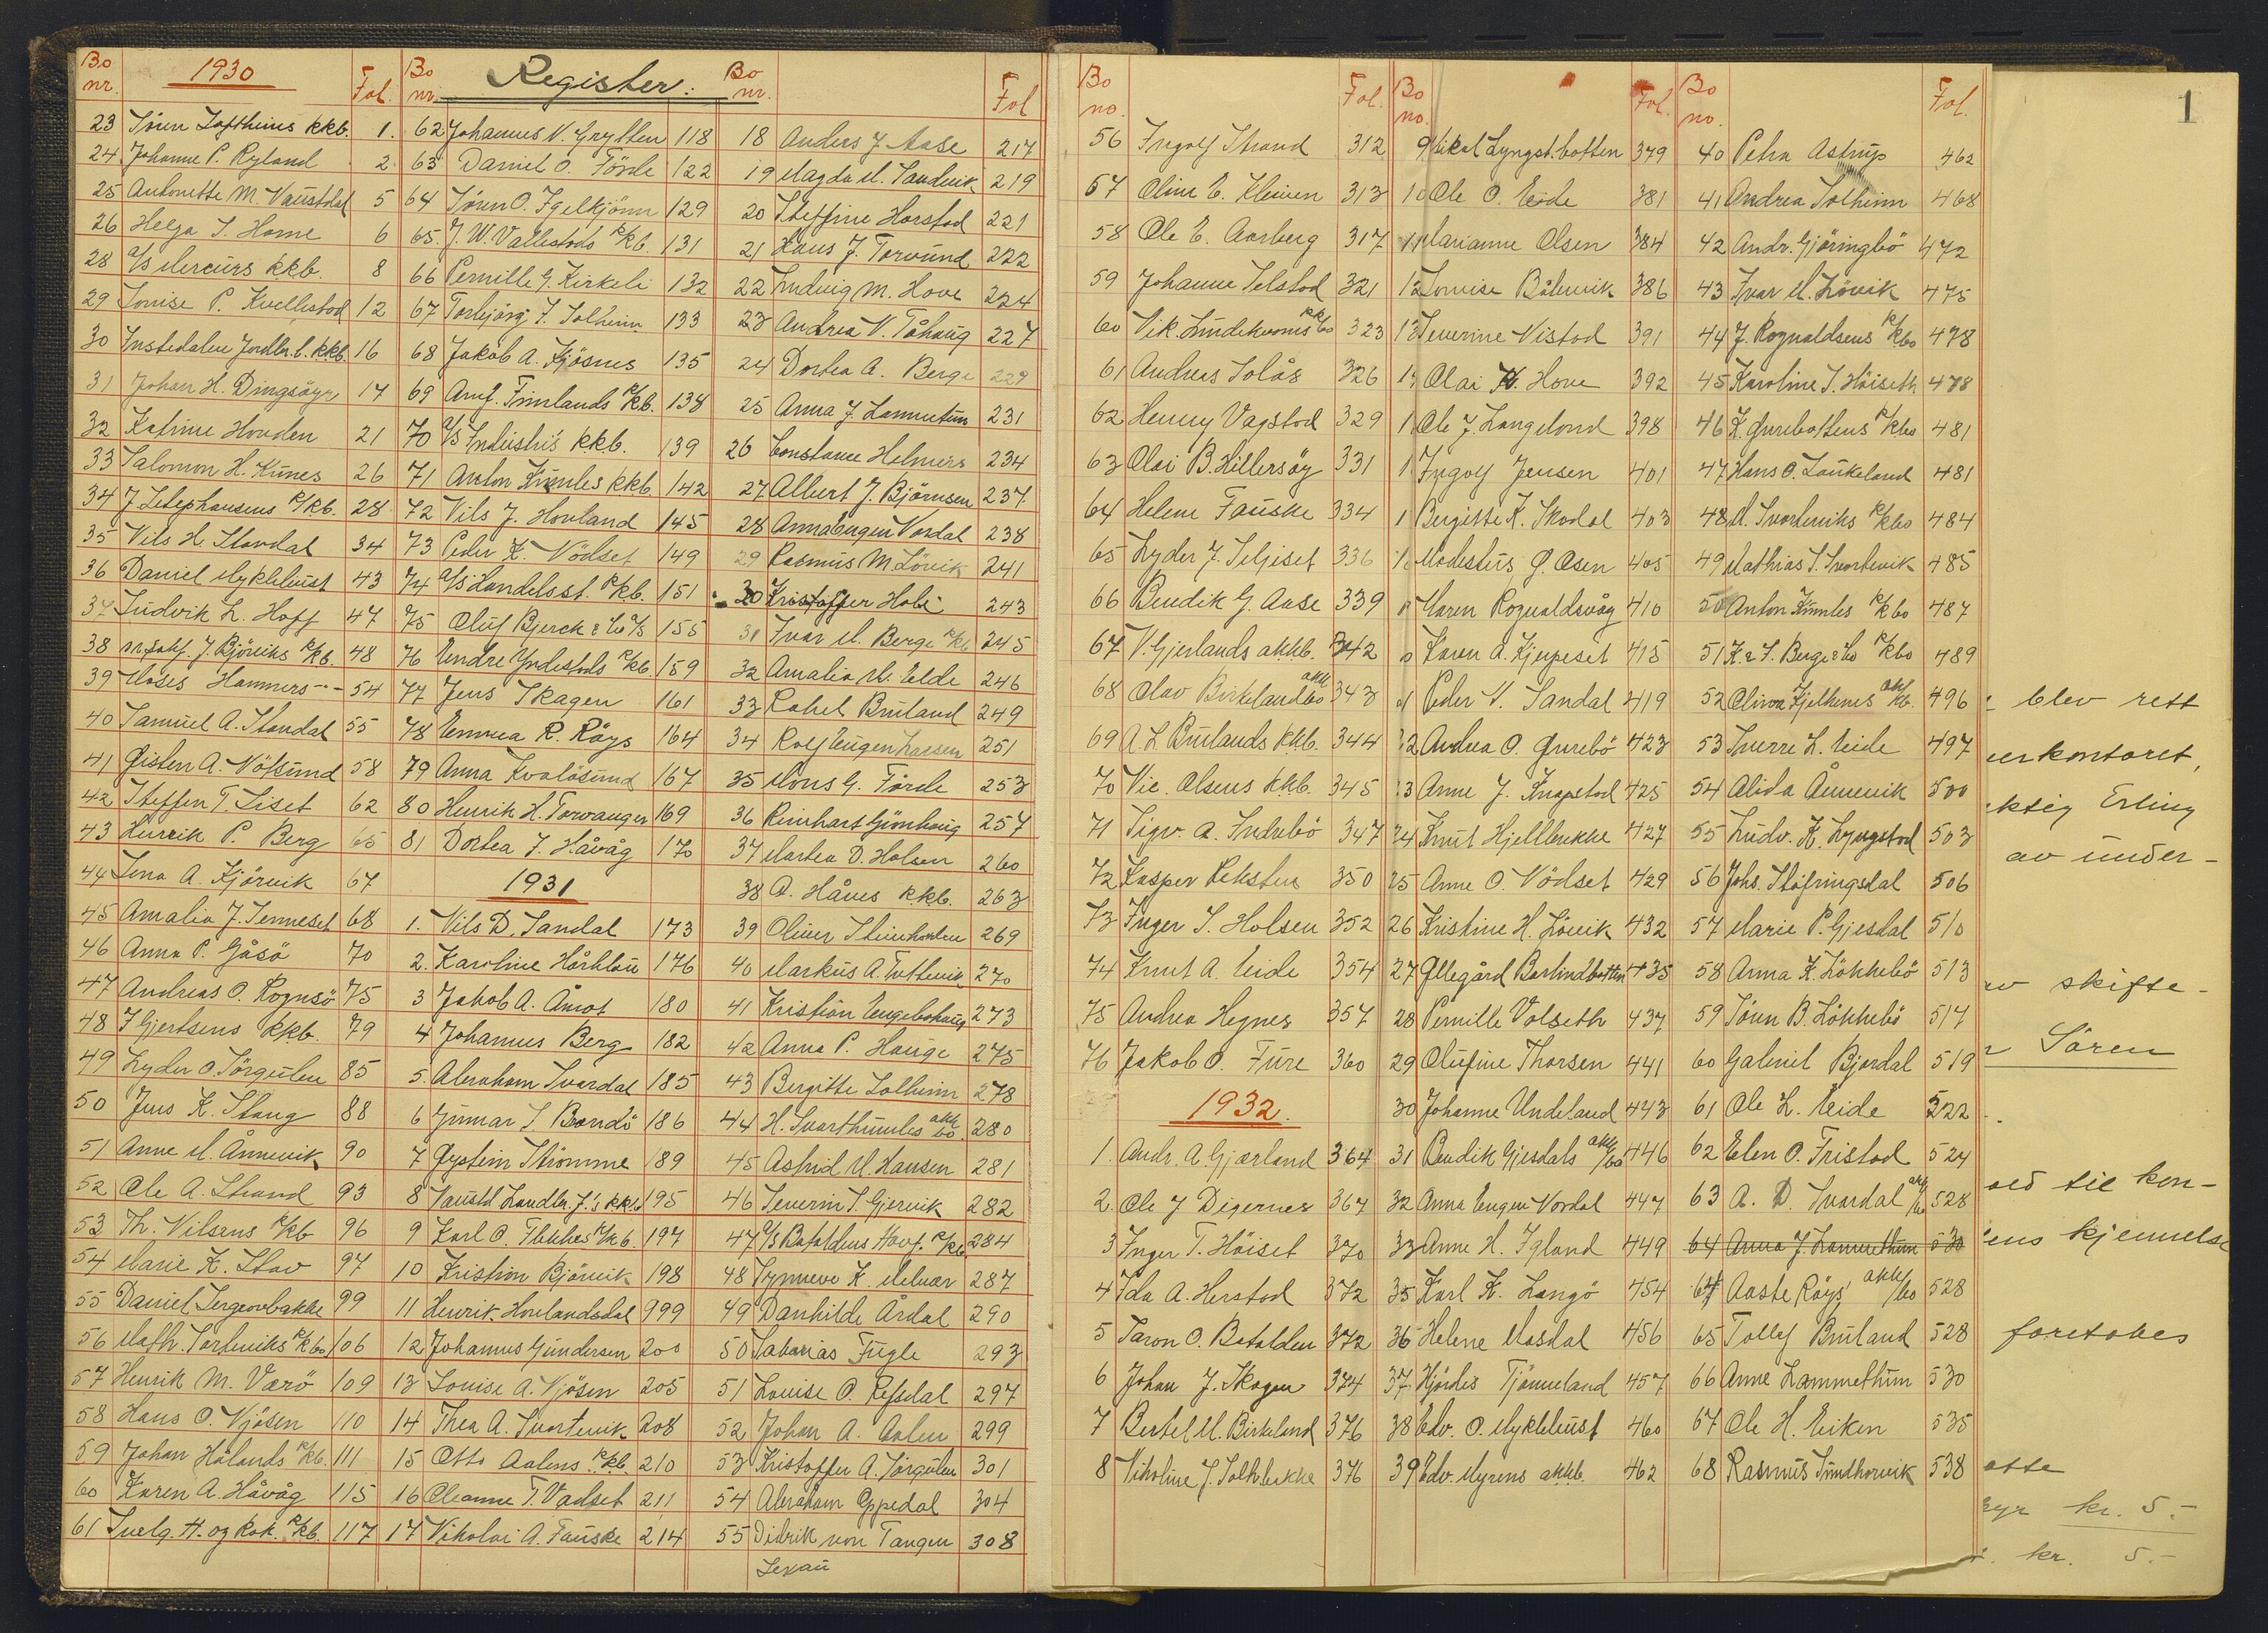 Register.
Bo nr. 1930 Fol.
23 Sören Loftheims kkb. 1.
24 Johanne P. Ryland 2.
25 Antonette M. Vaustdal 5
26 Helga S. Horne 6
28 a/s Mercurs kkb. 8
29 Lovise P. Kvellestad 12
30 Instedalen Jordbr.l. kkb. 16
31 Johan H. Dingsöyr 17
32 Katrine Hovden 21
33 Salomon H. Kimes 26
34 J. Stephansens k/kb. 28
35 Nils H. Standal 34
36 Daniel Myklebust 43
37 Ludvik L. Hoff 47
38 J. Björviks k/kb. 48
39 Moses Hammers--- 54
40 Samuel A. Standal 55
41 Gisten A. Nöfsund 58
42 Steffen T. Liset 62
43 Henrik P. Berg 65
44 Lena A. Kjörvik 67
45 Amalia J. Tenneset 68
46 Anna P. Gåsö 70
47 Andreas O. Rognsö 75
48 J Gjertsens kkb. 79
49 Lyder O. Sörgulen 85
50 Jens K. Stang 88
51 Anne M. Ånnevik 90
52 Ole A. Strand 93
53 Th. Nilsens k/kb 96
54 Marie K. Stav 97
55 Daniel Tergeovbakke 99
56 Math. Sorteviks k/kbo 106
57 Henrik M. Værö 109
58 Hans O. Njösen 110
59 Johan Hålands k/kb. 111
60 Karen A. Håvåg 115
61 Svelg. H. og Kok. k/kb. 117
Bo nr.
62 Johannes N. Grytten 118
63 Daniel O. Förde 122
64 Sören O. Igelkjönn 129
65. J. W. Vallestads k/kb. 131
66 Pernille G. Kirkeli 132
67 Torbjörg J. Solheim 133
68 Jakob A. Kjösnes 135
69 Arnf. Timlands k/kb. 138
70 a/s Industri's k.k.b. 139
71 Anton Kumles kkb. 142
72 Nils J. Hovland 145
73 Peder K. Nödset 149
74 a/s Landelsst. k/kb. 151
75 Oluf Bjerck & Co a/s 155
76 Endre Yndestads k/kb. 159
77 Jens Skagen 161
78 Emma R. Röys 164
79 Anna Kvalösund 167
80 Henrik H. Torvanger 169
81 Dortea J. Håvåg 170
1931
1. Nils D. Sandal 173
2. Karoline Hårklau 176
3 Jakob A. Åmot 180
4 Johannes Berg 182
5. Abraham Svardal 185
6 Gunnar S. Barndö 186
7 Øystein Strömme 189
8 Naustd. Landbr. J.'s kkb. 195
9 Karl O. Flekkes k/kb. 197
10 Kristian Björvik 198
11 Henrik Hovlandsdal 999
12 Johannes Gundersen 200
13 Lovise A. Njösen 205
14 Thea A. Svortevik 208
15 Otto Aalens k/kb. 210
16 Oleanne T. Vadset 211
17 Nikolai A. Fauske 214
Bo nr. Fol
18 Anders J. Aase 217
19 Magda M. Sandvik 219
20 Steffine Horstad 221
21 Hans J. Torvund 222
22 Ludvig M. Hove 224
23 Andrea N. Tåhaug 227
24 Dortea A. Berge 229
25 Anna J. Lammetun 231
26 Constance Helmers 234
27 Albert J. Björnsen 237
28 Anna Eugen Nordal 238
29 Rasmus M Lövik 241
30 Kristoffer Hole 243
31 Ivar M. Berge k/kb 245
32 Amalia M. Elde 246
33 Rakel Bruland 249
34 Rolf Eugen Larsen 251
35 Mons G. Förde 253
36 Reinhart Grönhaug 257
37 Martea D. Holsen 260
38 O. Hånes k.kb. 263
39 Oliver Steinhovden 269
40 Markus A. Totlevik 270
41 Kristian Engebøhaug 273
42 Anna P. Hauge 275
43 Bergitte Solheim 278
44 H. Svarthumles akk bo. 280
45 Astrid M. Hansen 281
46 Severin S. Gjervik 282
47 a/s Bataldens Havf. k/kb 284
48 Synneve K. Melvær 287
49 Danhilde Årdal 290
50 Sakarias Fugle 293
51 Lovise O. Refsdal 297
52 Johan A. Aalen 299
53 Kristoffer A. Sörgulen 301
54 Abraham Oppedal 304
55 Didrik von Tangen 308
Lexau
Bo no. Fol.
56 Ingolf Strand 312
57 Oline E. Kleiven 313
58 Ole E. Aarberg 317
59 Johanne Selstad 321
60 Vik Lundekvams k/kbo 323
61 Andreas Solås 326
62 Henny Vagstad 329
63 Olai B. Hillersöy 331
64 Helene Fauske 334
65 Lyder J. Seljeset 336
66 Bendik G. Aase 339
67 N. Gjerlands akkb. 342
68 Olav Birkeland akk bo 343
69 A. L. Brulands kkb. 344
70 Vic. Olsens k.k.b. 345
71 Sigv. A. Indrebö 347
72 Kasper Reksten 350
73 Inger S. Holsen 352
74 Knut A. Eide 354
75 Andrea Hegnes 357
76 Jakob O. Fure 360
1932.
1. Andr. A. Gjærland 364
2. Ole J Digernes 367
3 Inger T. Höiset 370
4 Ida A. Herstad 372
5 Taron O. Batalden 372
6 Johan J. Skagen 374
7 Bertel M. Birkeland 376
8 Nikoline J. Solhbakke 376
Bo no. Fol.
9 Nikol Lyngst.botten 379
10 Ole O. Eide 381
11 Marianne Olsen 384
12 Lovise Båtevik 386
13 Severine Nistad 391
Olai H. Hove 392
Ole J. Langeland 398
Ingolf Jensen 401
Bergitte K. Skodal 403
Modestus G. Osen 405
Maren Rognaldsvåg 410
Karen A. Kjempeset 415
Peder S. Sandal 419
Andrea O. Gurebö 423
Anne J. Knapstad 425
24 Knut Hjellbrekke 427
25 Anne O. Nödset 429
26 Kristine H. Lövik 432
27 Ollegård Barlindbotten 435
28 Pernille Volseth 437
29 Olufine Thorsen 441
30 Johanne Undeland 443
31 Bendik Gjesdals akk/bo 446
32 Anna Eugen Nordal 447
33 Anne H. Igland 449
35 Karl K. Langö 454
36 Helene Masdal 456
37 Hjördis Tjönneland 457
38 Edv. O. Myklebust 460
39 Edv. Myrens akkb. 462
Bo no. Fol.
40 Petra Astrup 462
41 Andrea Solheim 468
42 Andr. Gjöringbö 472
43 Ivar M. Lövik 475
44 J. Rognaldsens k/kbo 478
45 Karoline S. Höiseth 478
46 K. Gurebottens k/kbo 481
47 Hans O. Laukeland 481
48 M. Svorteviks k/kbo 484
49 Mathias S. Svortevik 485
50 Anton Kumles k/kbo 487
51 K. & S. Berge & Co k/kbo 489
52 Oliva Kjelkenes akk/kb. 496
53 Sverre L. Eide 497
54 Alida Ånnevik 500
55 Ludv. K. Lyngstad 503
56 Johs. Stöfringsdal 506
57 Marie P. Gjesdal 510
58 Anna K. Lökkebö 513
59 Sören B. Lökkebö 517
60 Gabriel Bjordal 519
61 Ole L. Eide 522
62 Elen O. Fristad 524
63 A. D. Svardal akk/bo 528
64 Anna J. Lammethun 530
64 Aaste Röys akk/bo 528
65 Tollef Bruland 528
66 Anne Lammethun 530
67 Ole H. Eiken 535
68 Rasmus Sundhovvik 538
1
blev rett
erkontoret,
ktig Erling
av under-
skifte-
Sören
til kon-
ens kjennelse
foretokes
otte
kr. 5.-
kr. 5.-